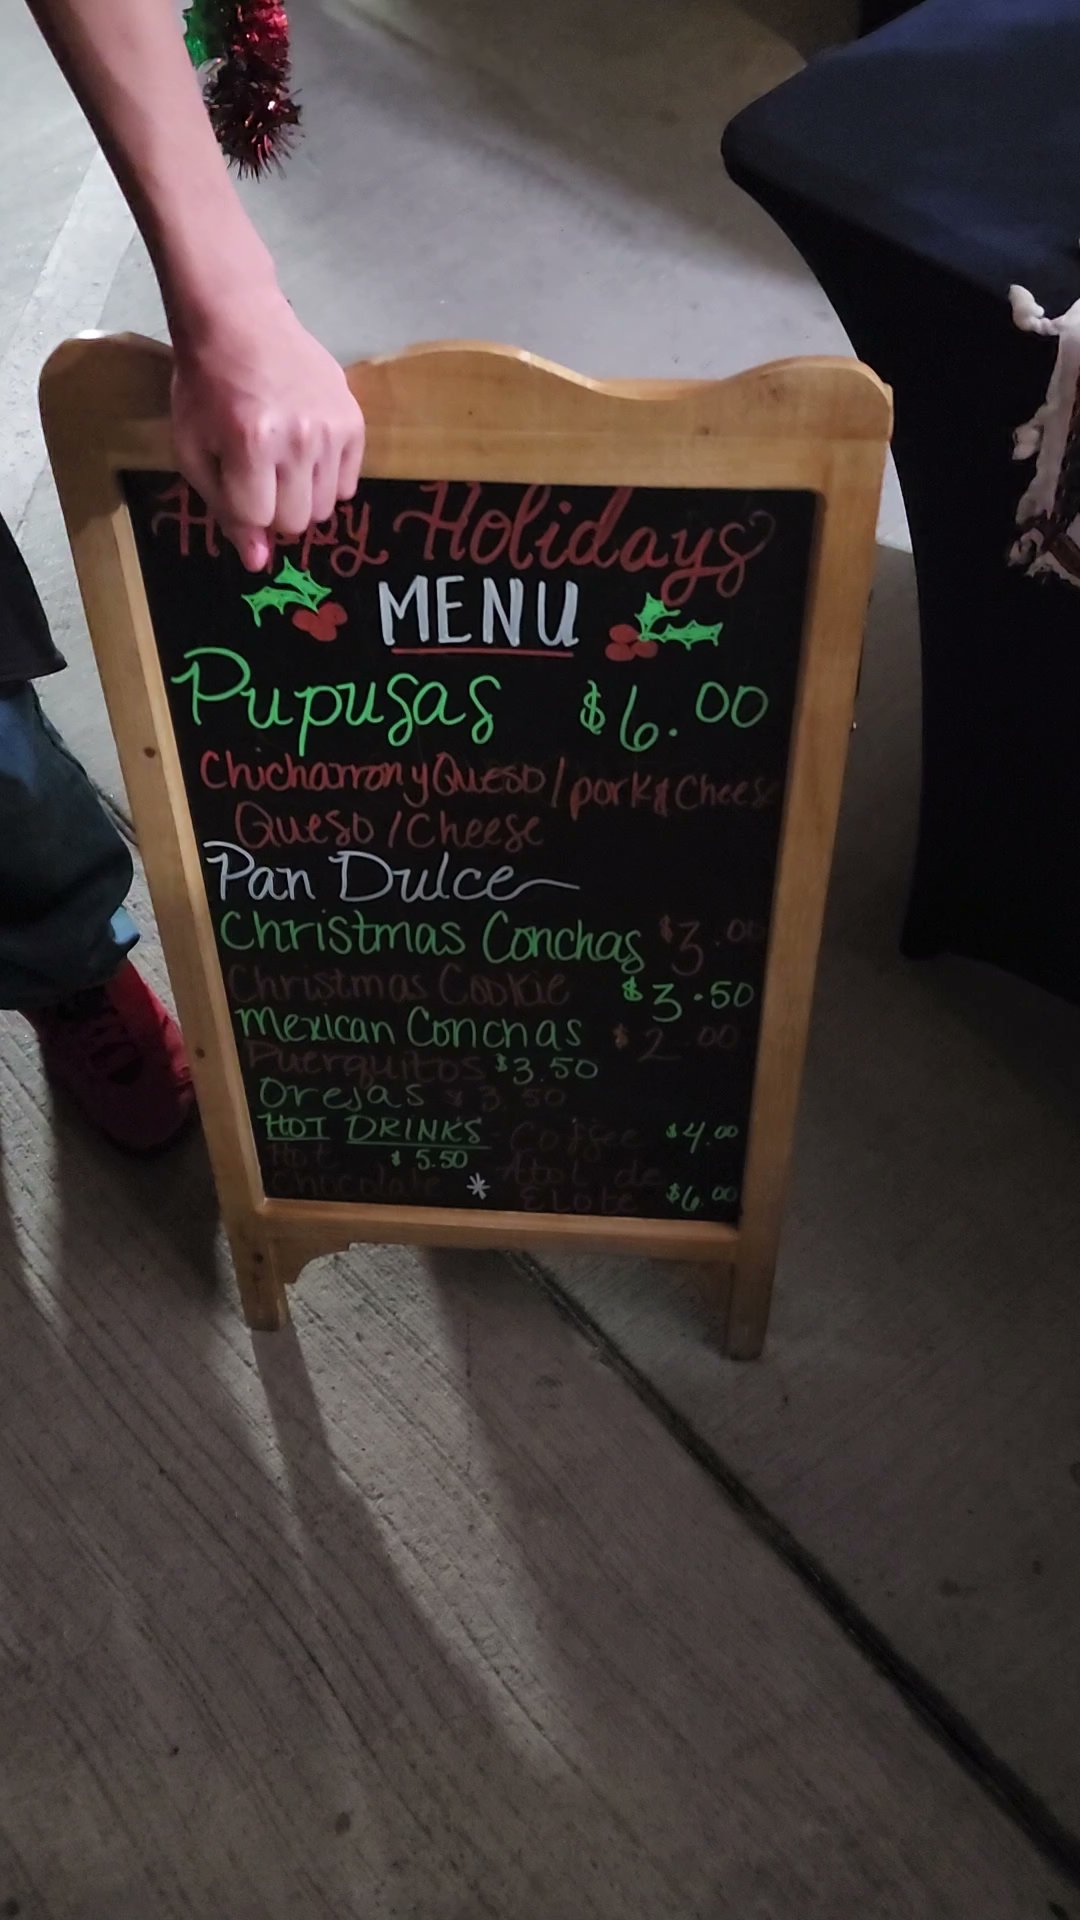 Happy Holidays
MENU
Pupusas $6.00
Chicharron y Queso / pork & Cheese
Queso / Cheese
Pan Dulce
Christmas Conchas $3.00
Christmas Cookie $3.50
Mexican Conchas $2.00
Puerquitos $3.50
Orejas $3.50
HOT DRINKS - Coffee $4.00
Hot $5.50 Atol de
Chocolate * Elote $6.00